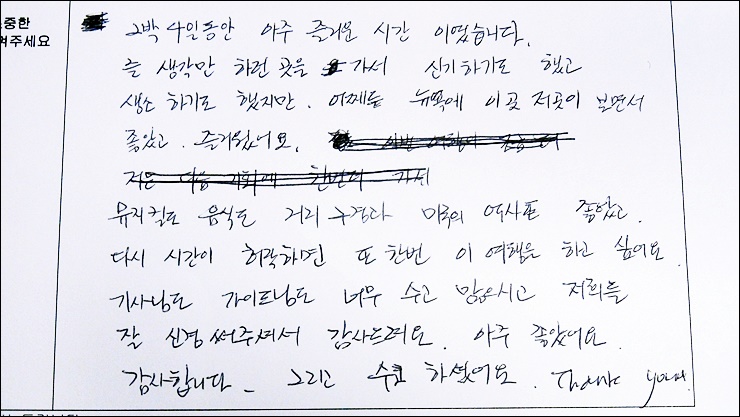 중한
겨주세요
2박 4일동안 아주 즐거운 시간 이였습니다.
늘 생각만 하던 곳을 가서 신기하기도 했고
생소 하기도 했지만. 어째든 뉴욕에 이곳 저곳이 보면서
좋았고. 즐거웠어요.
뮤지컬도 음식도 거리 구경과 미국의 역사도 좋았고.
다시 시간이 허락하면 또 한번 이 여행을 하고 싶어요.
기사님도 가이드님도 너무 수고 많으시고 저희들
잘 신경써주셔서 감사드려요. 아주 좋았어요
감사합니다. 그리고 수고 하셨어요. Thank you.